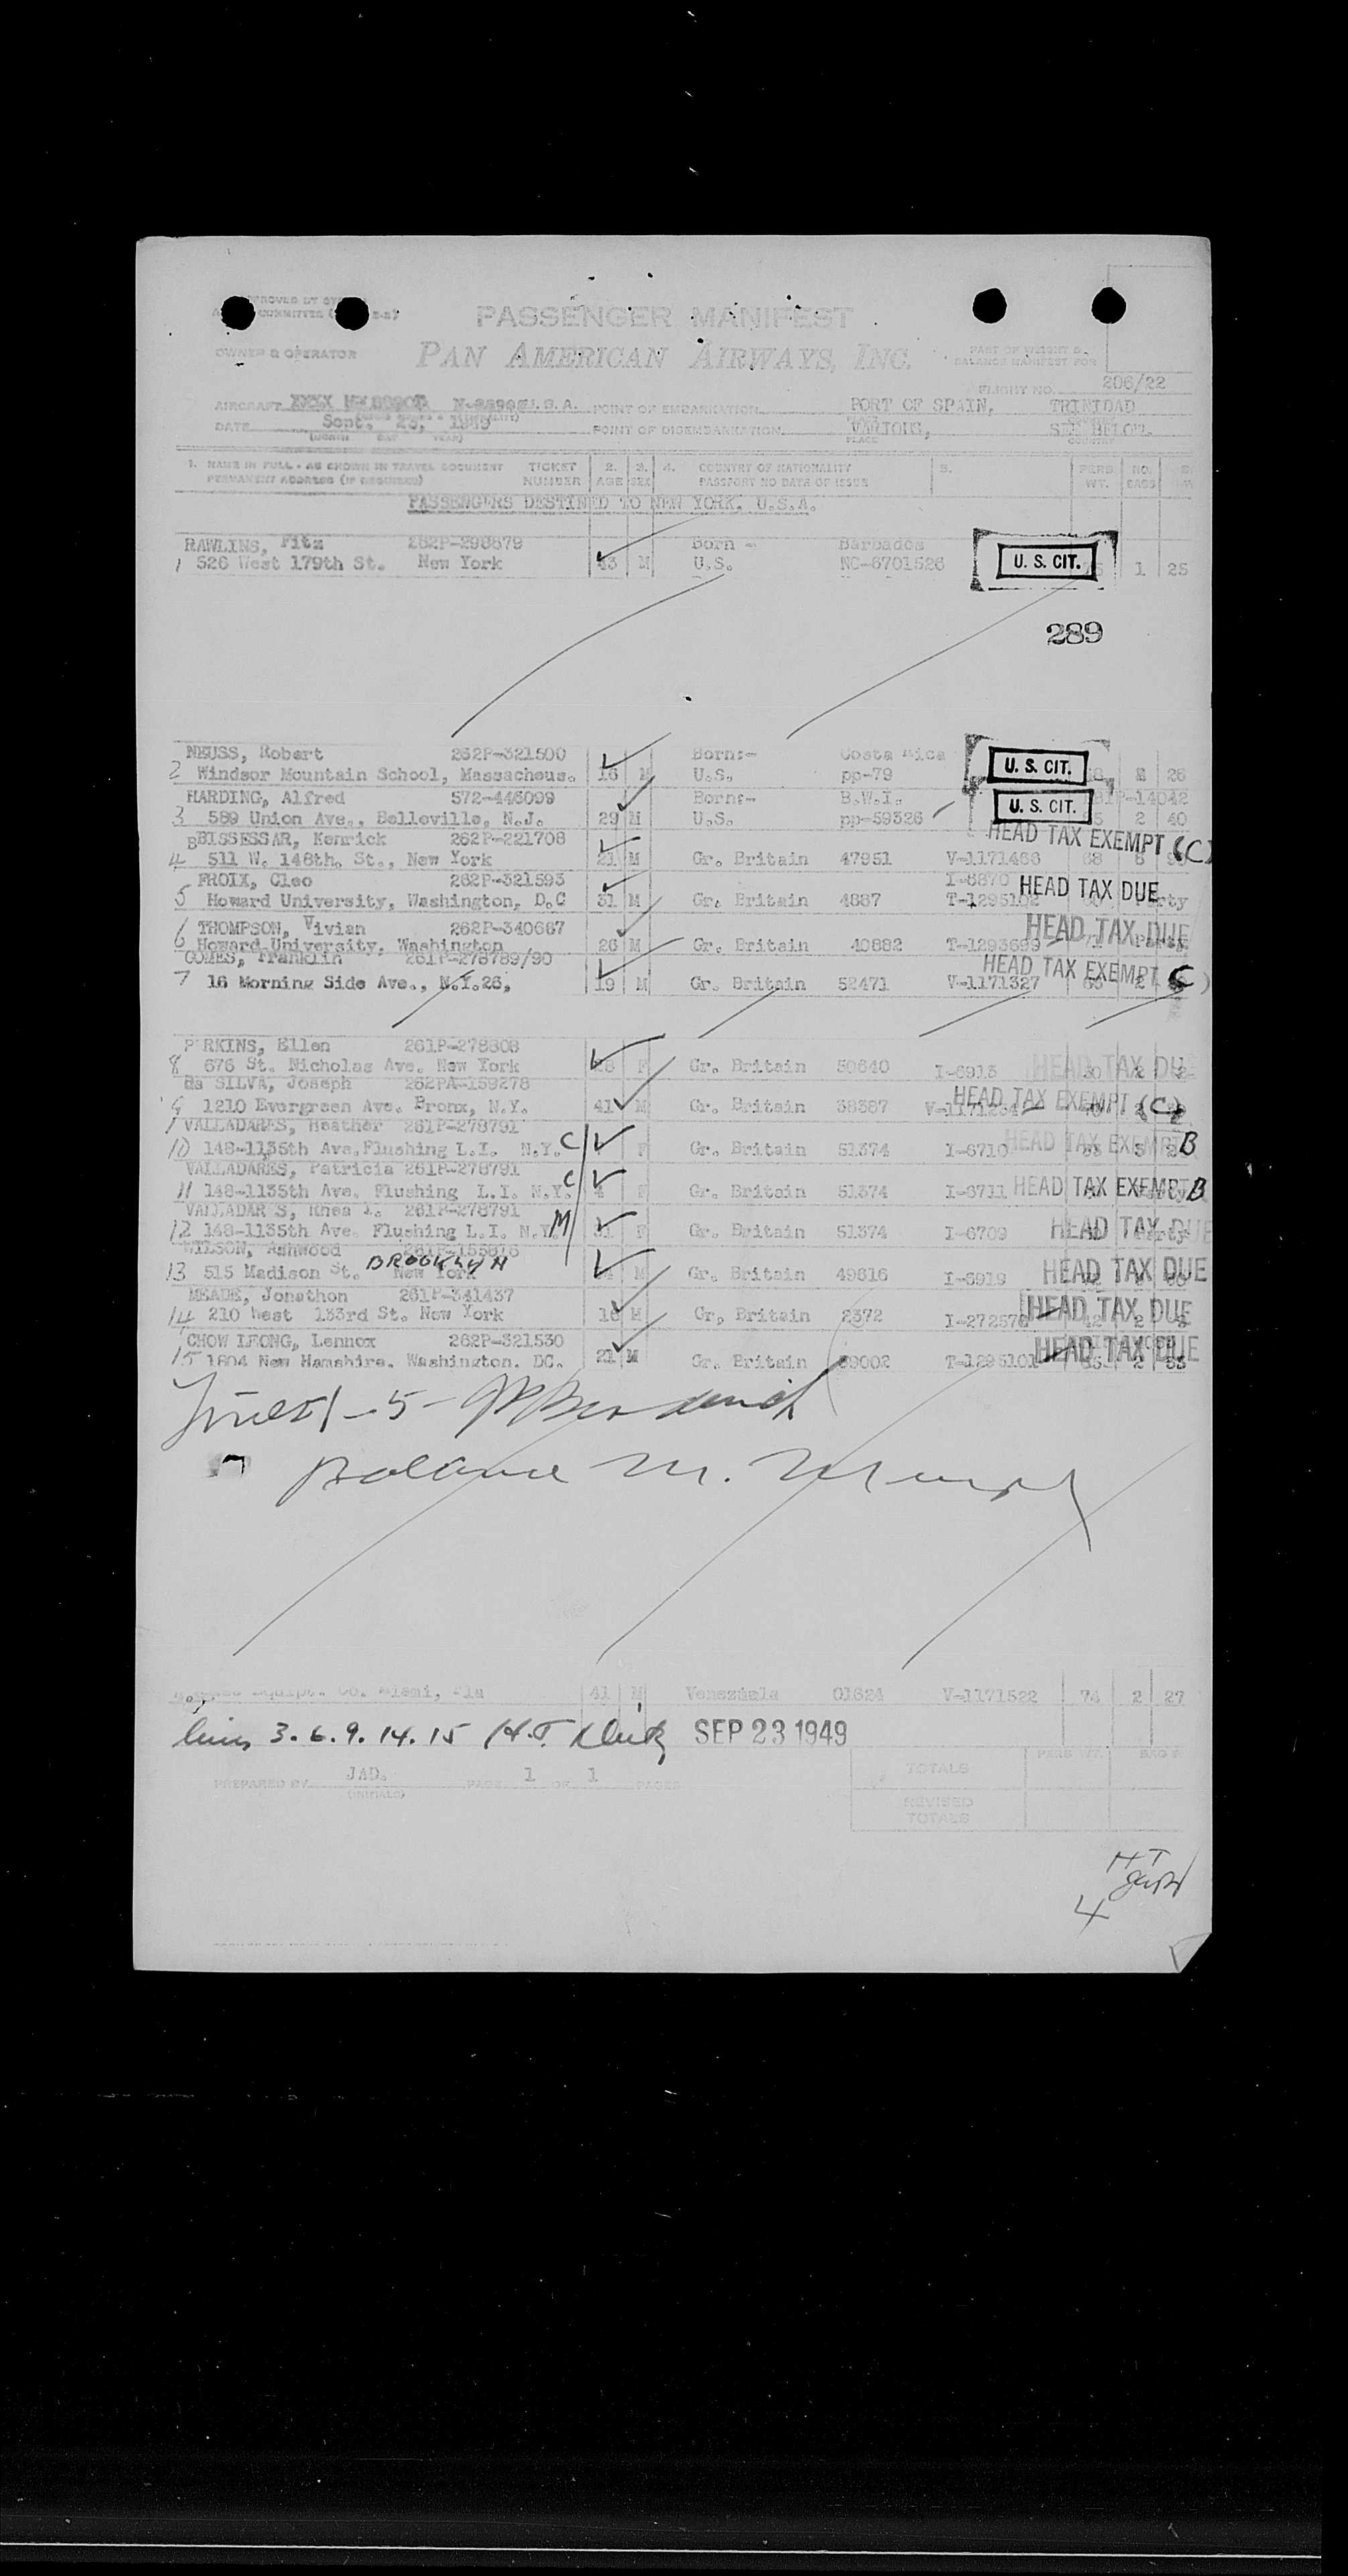 PASSENGER MANIFEST
OWNER & OPERATOR PAN AMERICAN AIRWAYS, INC. PART OF WEIGHT & BALANCE MANIFEST FOR
FLIGHT NO. 206/22
AIRCRAFT U.S.A. POINT OF EMBARKATION PORT OF SPAIN, TRINIDAD
DATE Sept. 1949 POINT OF DISEMBARKATION VARIOUS, SEE BELOW.
(MONTH DAY YEAR) PLACE COUNTRY
1. NAME IN FULL - AS SHOWN IN TRAVEL DOCUMENT TICKET 2. 3. 4. COUNTRY OF NATIONALITY 5. PERS. NO.
PERMANENT ADDRESS (IF REQUIRED) NUMBER AGE SEX PASSPORT NO DATE OF ISSUE WT. BAGS
PASSENGERS DESTINED TO NEW YORK, U.S.A.
RAWLINS, Fitz 262P-298679 Born - Barbados
1 526 West 179th St. New York 43 M U.S. NC-6701526 U. S. CIT. 1 25
289
NEUSS, Robert 262P-321500 Born:- Costa Rica
2 Windsor Mountain School, Massachous. 16 M U.S. pp-79 U. S. CIT. 26
HARDING, Alfred 572-446099 Born:- B.W.I.
3 589 Union Ave., Belleville, N.J. 29 M U.S. pp-59326 U. S. CIT. 2 40
BISSESSAR, Kenrick 262P-221708 HEAD TAX EXEMPT (C)
4 511 W. 148th. St., New York 21 M Gr. Britain 47951 V-1171466 68
FROIX, Cleo 262P-321593 I-6870 HEAD TAX DUE
5 Howard University, Washington, D.C 31 M Gr. Britain 4887 T-1295102
THOMPSON, Vivian 262P-340667 HEAD TAX DUE
6 Howard University, Washington 26 M Gr. Britain 40882 T-1293699
GOMES, Franklin 261P-278789/90 HEAD TAX EXEMPT C)
7 16 Morning Side Ave., N.Y.26, 19 M Gr. Britain 52471 V-1171327 65 2
P RKINS, Ellen 261P-278808
8 676 St. Nicholas Ave. New York F Gr. Britain 50640 I-6913 HEAD TAX DUE
Da SILVA, Joseph 262PA-159278 HEAD TAX EXEMPT (C)
9 1210 Evergreen Ave. Bronx, N.Y. 41 M Gr. Britain 38387
VALLADARES, Heather 261P-278791
10 148-1135th Ave. Flushing L.I. N.Y. C F Gr. Britain 51374 I-6710 HEAD TAX EXEMPT B
VALLADARES, Patricia 261P-278791
11 148-1135th Ave. Flushing L.I. N.Y. C 4 F Gr. Britain 51374 I-6711 HEAD TAX EXEMPT B
VALLADAR S, Rhea 261P-278791
12 148-1135th Ave Flushing L.I. N.Y. M 31 F Gr. Britain 51374 I-6709 HEAD TAX DUE
WILSON, Ashwood BROOKLYN
13 515 Madison St. New York M Gr. Britain 49616 I-6919 HEAD TAX DUE
MEADE, Jonathon 261P-341437
14 210 West 133rd St. New York 18 M Gr, Britain 2372 I-272576 HEAD TAX DUE
CHOW LEONG, Lennox 262P-321530
15 1804 New Hamshire. Washington. DC. 21 M Gr. Britain 59002 T-1295101 HEAD TAX DUE
Equipt. Co. Miami, Fla 41 M Venezuela 01824 V-1171522 74 2 27
3. 6. 9. 14. 15 H.T. SEP 23 1949
TOTALS
PREPARED BY JAD. PAGE 1 OF 1 PAGES
(INITIALS)
REVISED TOTALS
HT
4